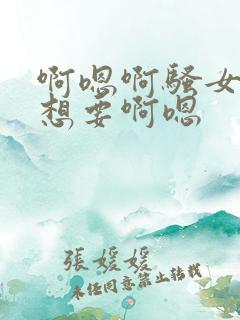 啊嗯啊骚女
想要啊嗯
張媛媛
未经同意禁止转载